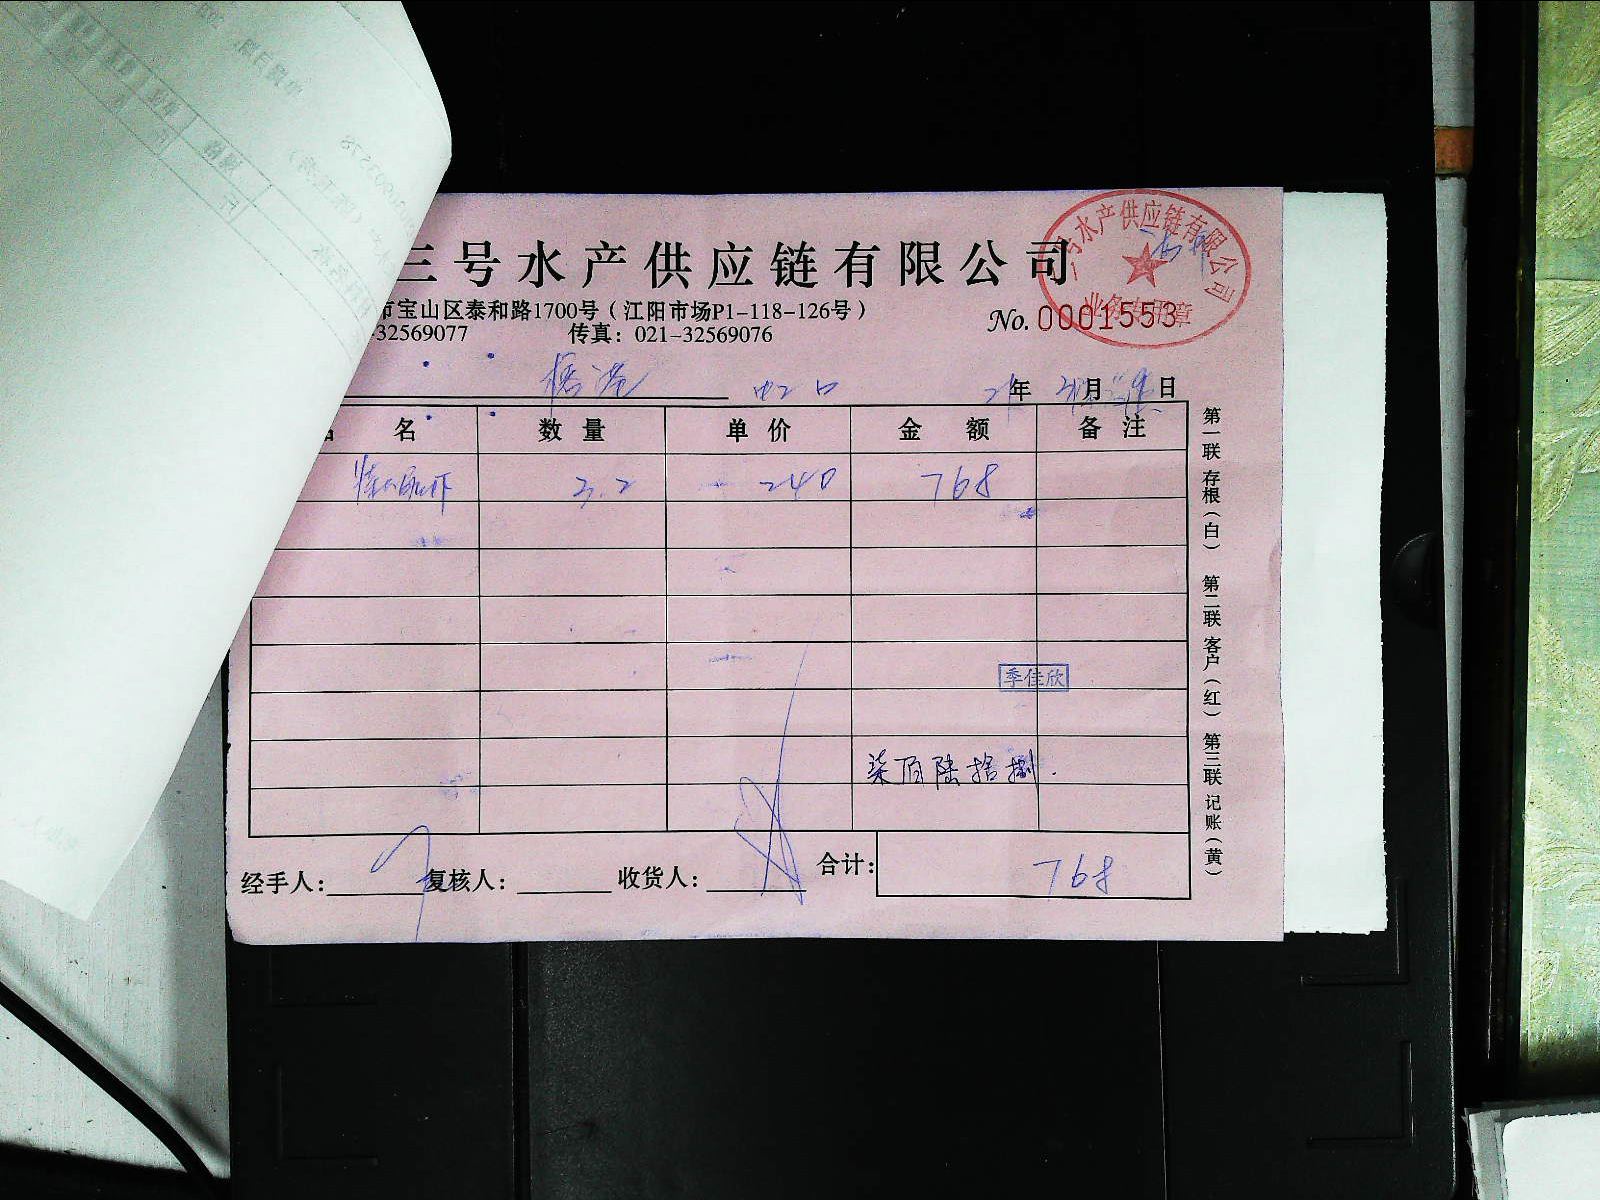 三号水产供应链有限公司
市宝山区泰和路1700号（江阳市场P1-118-126号）
-32569077 传真：021-32569076
No. 0001553
号水产供应链有限公司
业务专用章
年 月 日
名 数量 单价 金额 备注
3.2 240 768
季佳欣
柒佰陆拾捌.
经手人： 复核人： 收货人： 合计： 768
第一联 存根（白） 第二联 客户（红） 第三联 记账（黄）